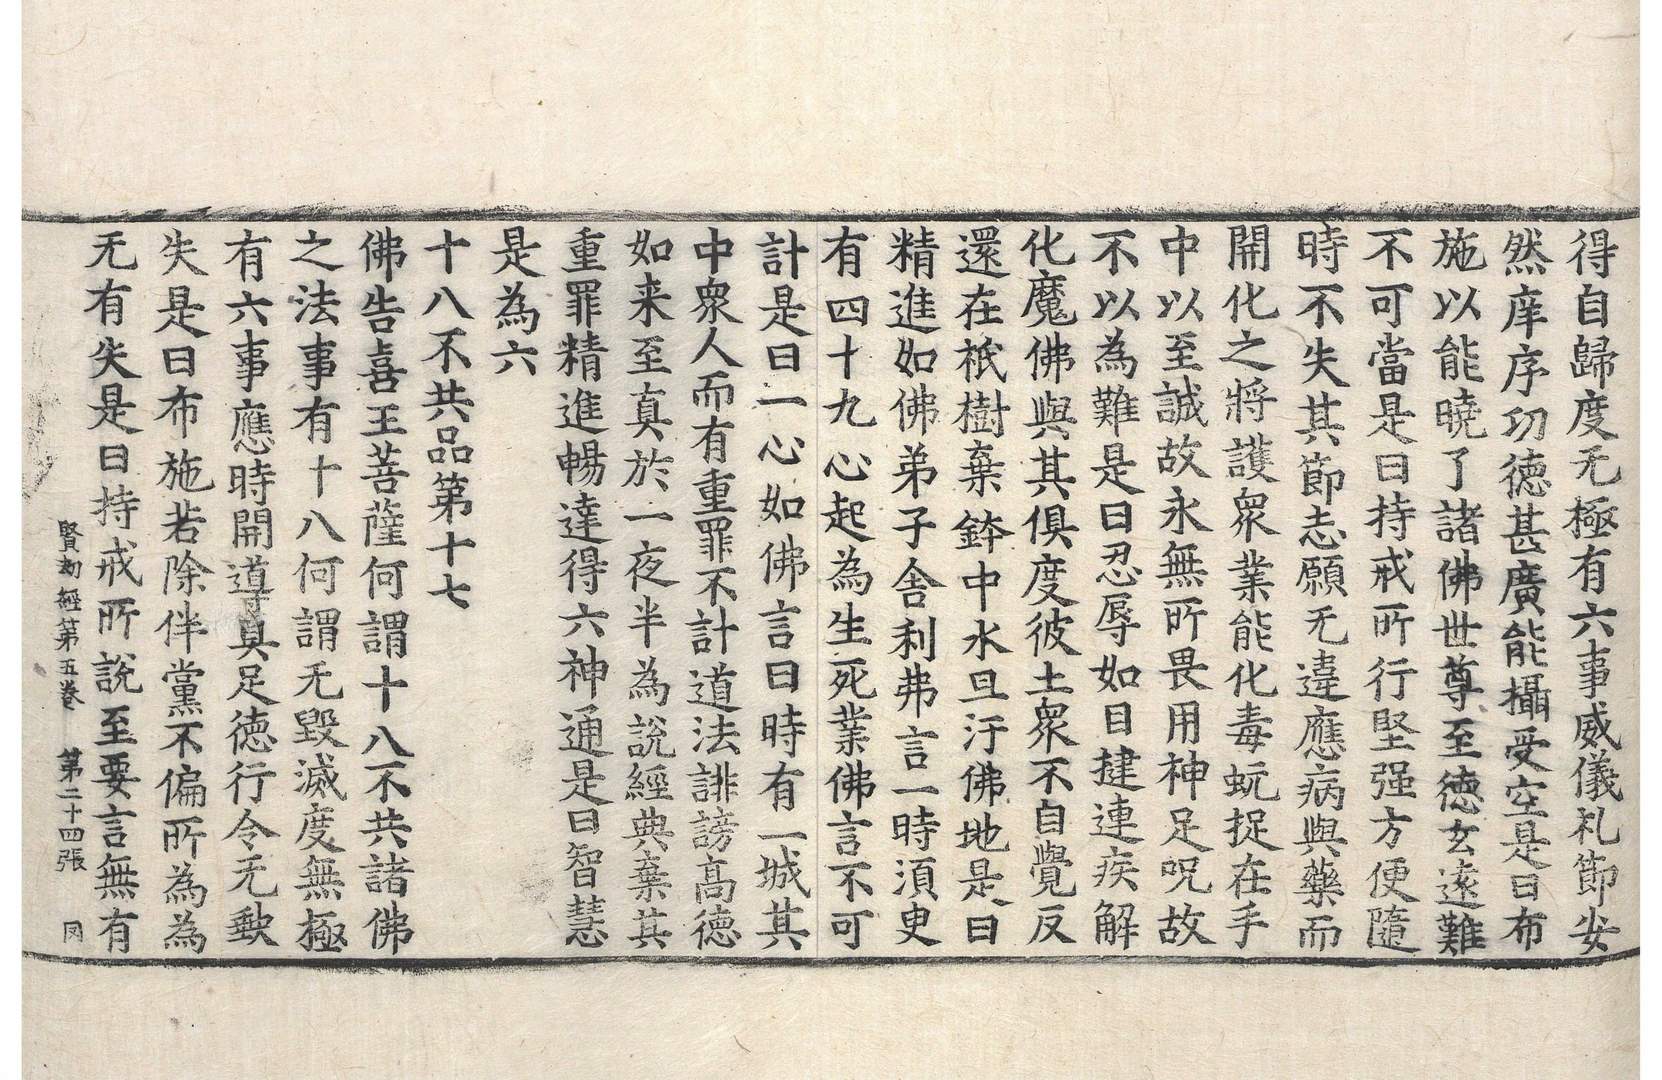 得自歸度无極有六事威儀礼節安
然庠序功德甚廣能攝受空是曰布
施以能曉了諸佛世尊至德玄遠難
不可當是曰持戒所行堅强方便隨
時不失其節志願无違應病與藥而
開化之將護衆業能化毒蚖捉在手
中以至誠故永無所畏用神足呪故
不以為難是曰忍辱如目揵連疾解
化魔佛與其俱度彼土衆不自覺反
還在祇樹棄鉢中水旦汙佛地是曰
精進如佛弟子舎利弗言一時須臾
有四十九心起為生死業佛言不可
計是曰一心如佛言曰時有一城其
中衆人而有重罪不計道法誹謗髙德
如来至真於一夜半為說經典棄其
重罪精進暢達得六神通是曰智慧
是為六
十八不共品第十七
佛告喜王菩薩何謂十八不共諸佛
之法事有十八何謂无毀滅度無極
有六事應時開導具足德行令无缺
失是曰布施若除伴黨不偏所為為
无有失是曰持戒所說至要言無有
賢劫經第五卷 第二十四張 同